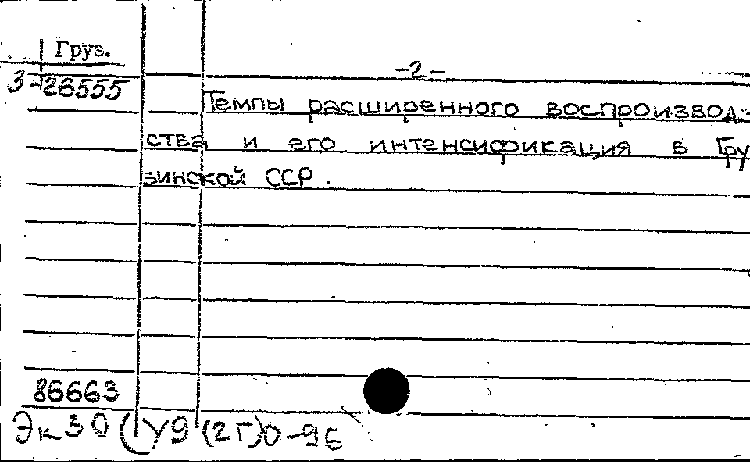 Груз.
-2-
3-26555
Темпы расширенного воспроизвод-
ства и его интенсификация в Гру
зинской ССР.
86663
Эк30(У9(2Г)0-96